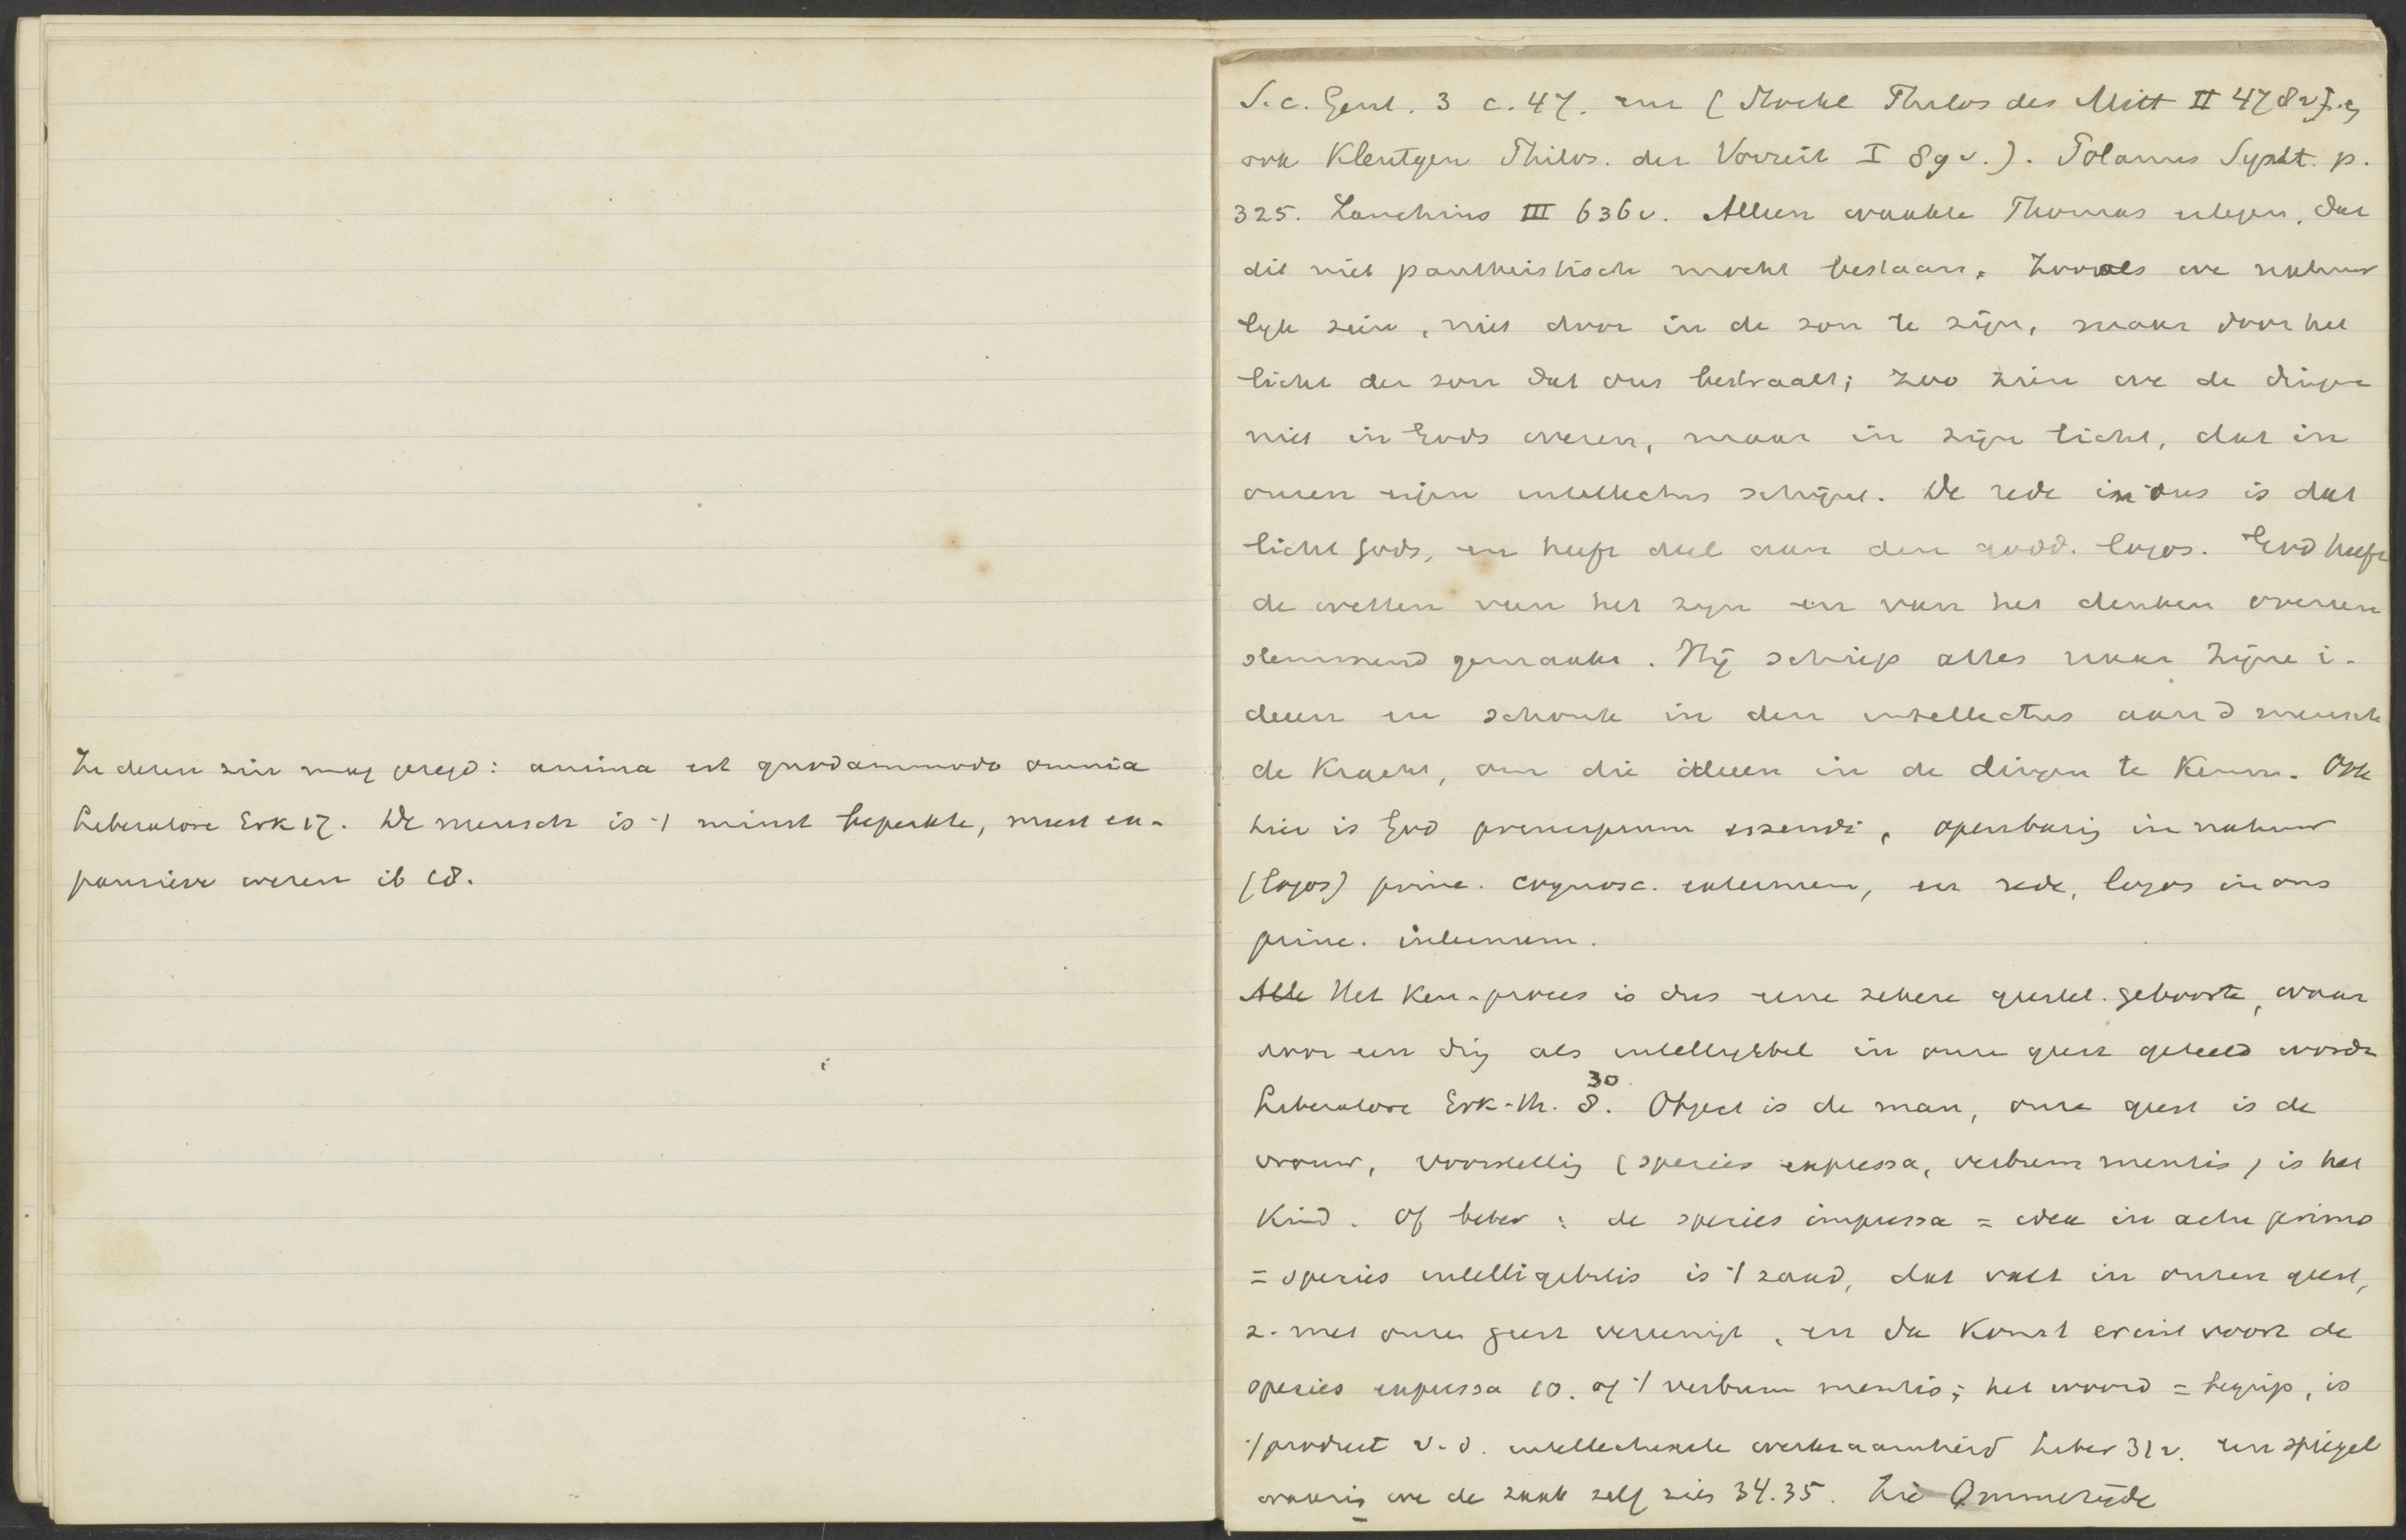 In dezen zin mag gezegd: anima est quodammodo omnia
Liberatore Erk 17. De mensch is 't minst beperkte, meest ex-
pansieve wezen ib 18.
S. c. Gent. 3 c. 47. enz (Stöckl Philos des Mitt II 478v
ook Kleutgen Philos. der Vorzeit I 89v.). Polanus Synt. p.
325. Zanchius III 636v. Alleen waakte Thomas ertegen, dat
dit niet pantheistisch mocht bestaan. Zooals we natuur
lijk zien, niet door in de zon te zijn, maar door het
licht der zon dat ons bestraalt; zoo zien we de dingen
niet in Gods wezen, maar in zijn licht, dat in
onzen eigen intellectus schijnt. De rede in ons is dat
licht Gods, en heeft deel aan den godd. logos. God heeft
de wetten van het zijn en van het denken overeen
stemmend gemaakt. Hij schiep alles naar Zijne i-
deeen en schonk in den intellectus aan d mensch
de Kracht, om die ideeen in de dingen te Kennen. Ook
hier is God principium essendi, openbaring in natuur
(logos) princ. cognosc. externum, en rede, logos in ons
princ. internum.
Alle Het Ken-proces is dus eene zekere geestel. geboorte, waar
door een ding als intelligibel in onze geest geteeld wordt
Liberatore Erk-th. 8. 30 Object is de man, onze geest is de
vrouw, voorstelling (species expressa, verbum mentis) is het
Kind. Of beter: de species impressa = idea in actu primo
= species intelligibilis is 't zaad, dat valt in onzen geest,
z. met onze geest vereenigt, en da Komt eruit voort de
species expressa of 't verbum mentis; het woord = begrip, is
't product v. d. intellectueele werkzaamheid Liber 31v. een spiegel
waarin we de zaak zelf zien 34.35. Zie Ommerijde